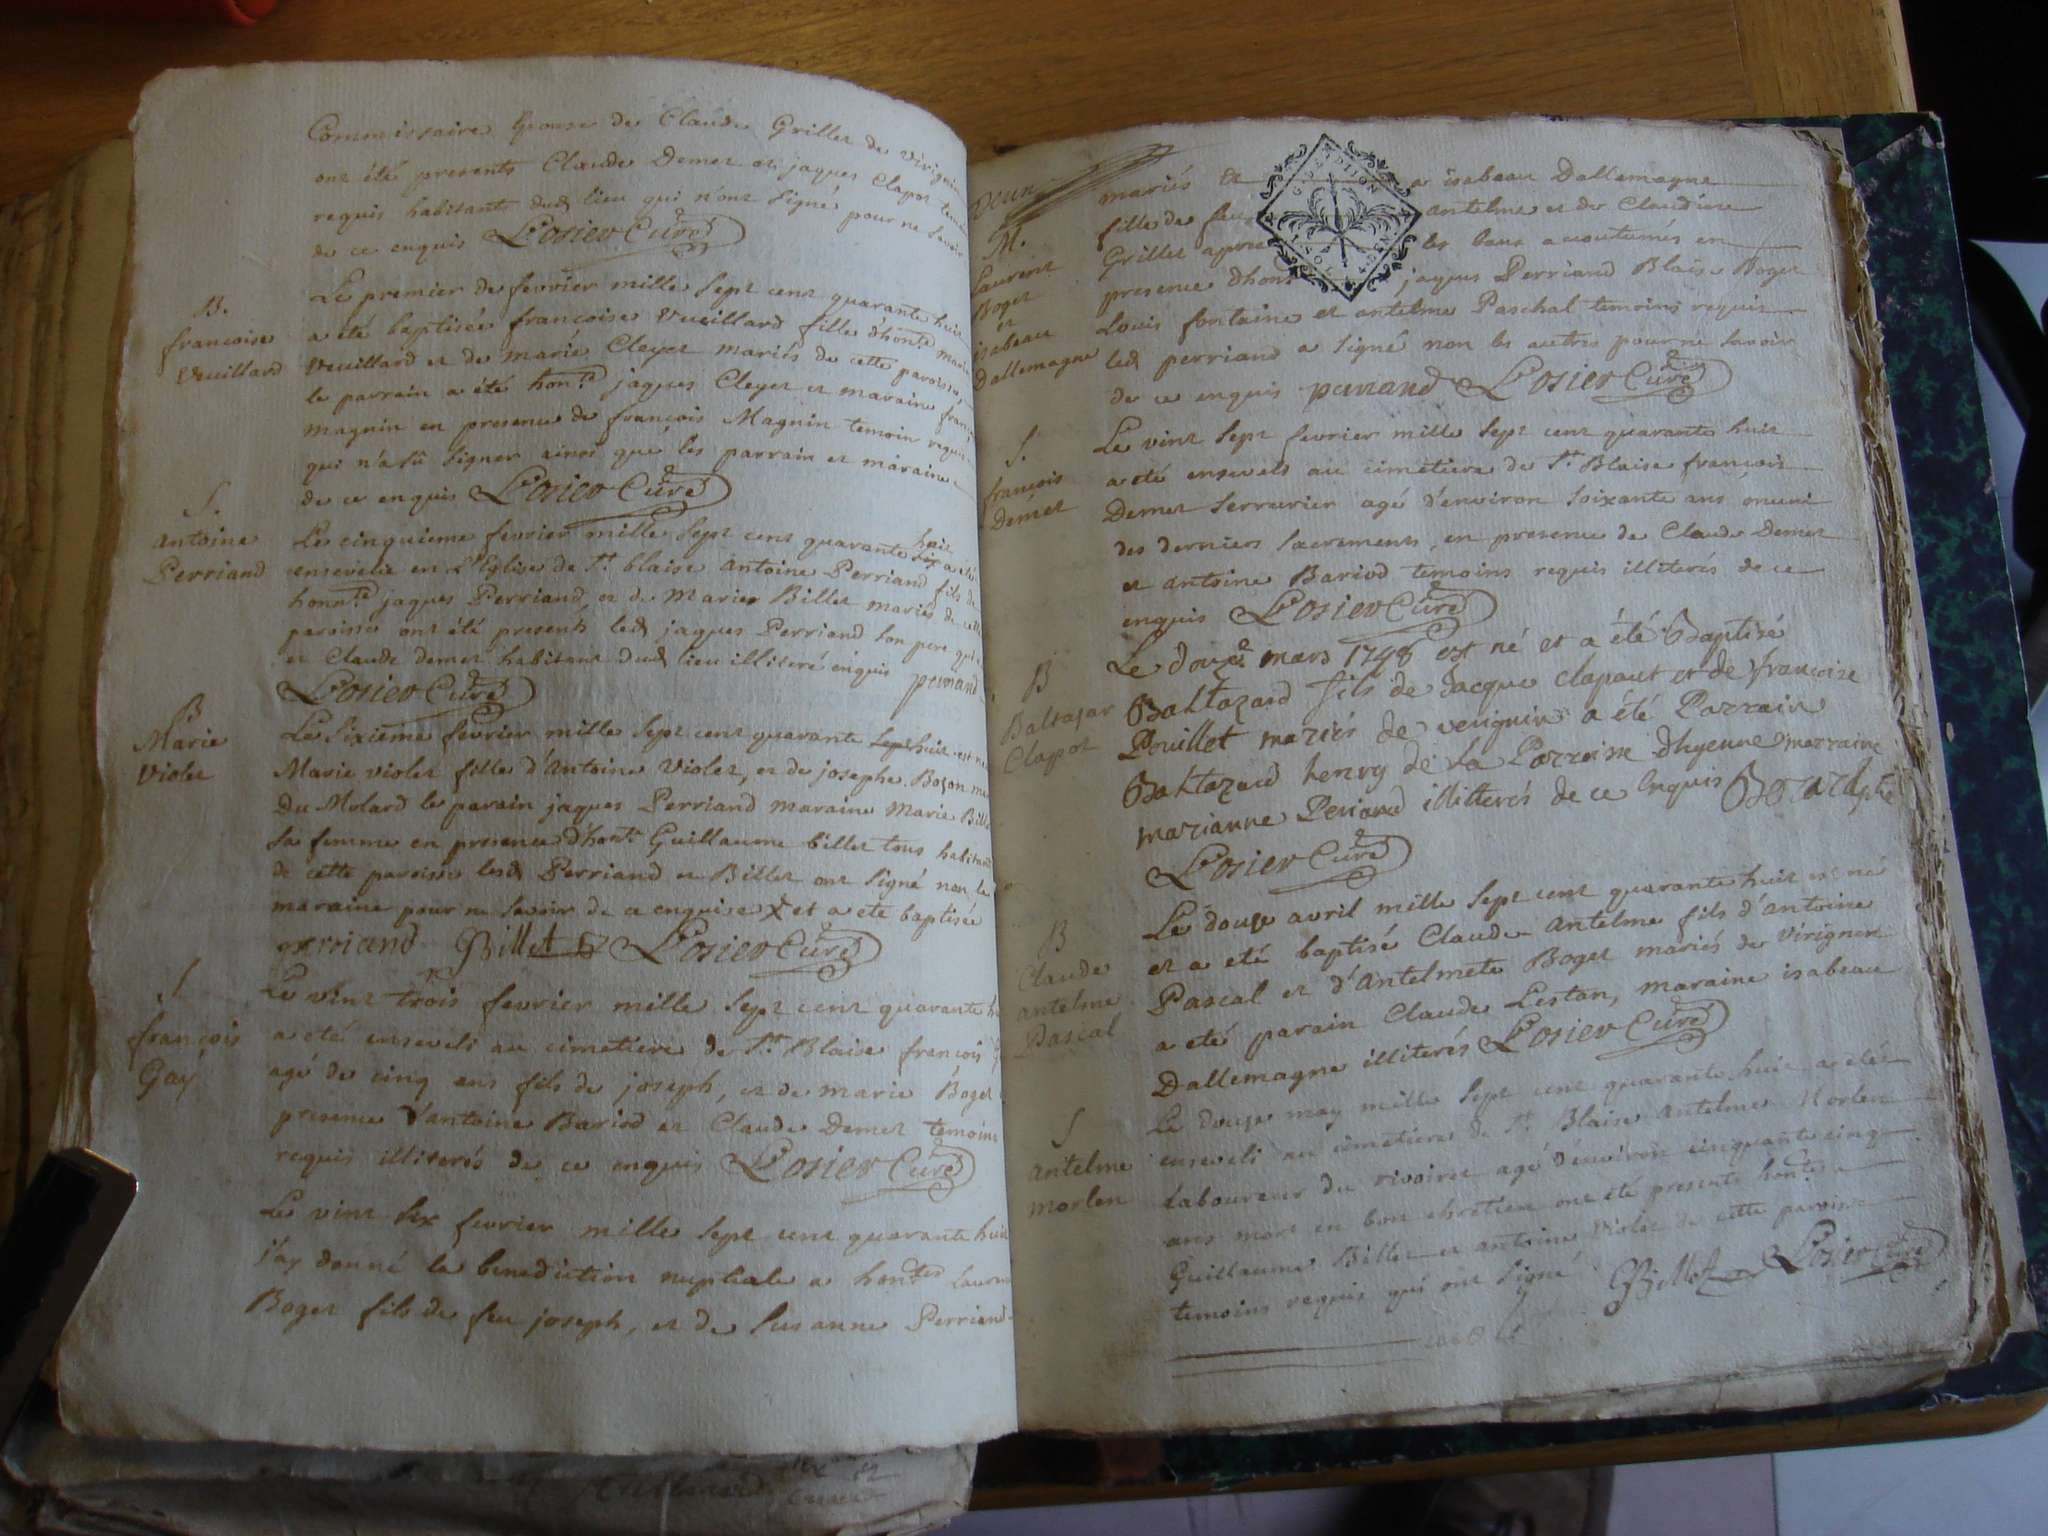 Commissaire Epouse de Claude Grillet de Virignin
ont été presents Claude Demet et jaques Clapot temoins
requis habitants dud lieu qui n'ont Signé pour ne Savoir
de ce enquis L'osier Curé
B.
françoise
Vueillard
Le premier de fevrier mille Sept cent quarante huit
a été baptisée françoise Vueillard fille d'hont.
Vueillard et de marie Cleyet mariés de cette paroisse,
le parrain a été hon.te jaques Cleyet et maraine
magnin en presence de françois Magnin temoin requis
qui n'a Sû Signer ainsi que les parrain et maraine
de ce enquis L'osier Curé
S.
Antoine
Perriand
Le cinquieme fevrier mille Sept cent quarante huit a été
enseveli en L'Eglise de St. blaise Antoine Perriand fils de
honn.te jaques Perriand, et de Marie Billet mariés de cette
paroisse ont été presents led jaques Perriand Son pere qui
et Claude demet habitant dud lieu illiteré enquis periand
L'osier Curé
B
Marie
Violet
Le Sixieme fevrier mille Sept cent quarante huit est née
Marie violet fille d'Antoine Violet, et de josephe Bozon
Du Molard le parain jaques Perriand maraine Marie Billet
Sa femme en presence d'hont. Guillaume billet tous habitants
de cette paroisse lesd Perriand et Billet ont Signé non la
maraine pour ne Savoir de ce enquise et a eté baptisée
perriand Billet L'osier Curé
S.
françois
Gay
Le vint trois fevrier mille Sept cent quarante
a eté enseveli au cimetiere de St. Blaise françois
agé de cinq ans fils de joseph, et de marie Boget
presence d'antoine Bariod et Claude Demet temoins
requis illiterés de ce enquis L'osier Curé
Le vint Six fevrier mille Sept cent quarante huit
j'ay donné la benediction nuptiale a hon.tes Laurent
Boget fils de feu joseph, et de Susanne Perriand
Deux
M.
Laurent
Boget
et
isabeau
Dallemagne
mariés et a isabeau Dallemagne
fille de feu antelme et de Claudine
Grillet apres les bans accoutumés en
presence d'hont. jaques Perriand Blaise Boget
G. D. DIJON
Louis fontaine et antelme Paschal temoins requis
led perriand a Signé non les autres pour ne Savoir
de ce enquis periand L'osier Curé
S.
françois
Demet
Le vint Sept fevrier mille Sept cent quarante huit
a eté enseveli au cimetiere de St. Blaise françois
Demet Serrurier agé d'environ Soixante ans muni
des derniers Sacrements, en presence de Claude Demet
et antoine Bariod temoins requis illiterés de ce
enquis L'osier Curé
B
Baltazar
Clapot
Le douze mars 1748 est né et a été Baptizé
Baltazard fils de Jacque clapaut et de françoise
Pouillet mariés de verignin a été Parrain
Baltazard henry de La Parroisse dhyenne marraine
marianne Periand illitterés de ce Enquis
L'osier Curé
B
Claude
antelme
Pascal
Le douze avril mille Sept cent quarante huit est né
et a eté baptisé Claude Antelme fils d'Antoine
Pascal et d'Antelmete Boget mariés de Virignin
a eté parain Claude Lestan, maraine isabeau
Dallemagne illiterés L'osier Curé
S
antelme
morlen
Le douze may mille Sept cent quarante huit a eté
enseveli au cimetiere de St. Blaise Antelme Morlen
Laboureur du rivoiret agé d'environ cinquante cinq
ans mort en bon chretien ont été presents hon.tes
Guillaume Billet et antoine Violet de cette paroisse
temoins requis qui ont Signé Billet L'osier Curé